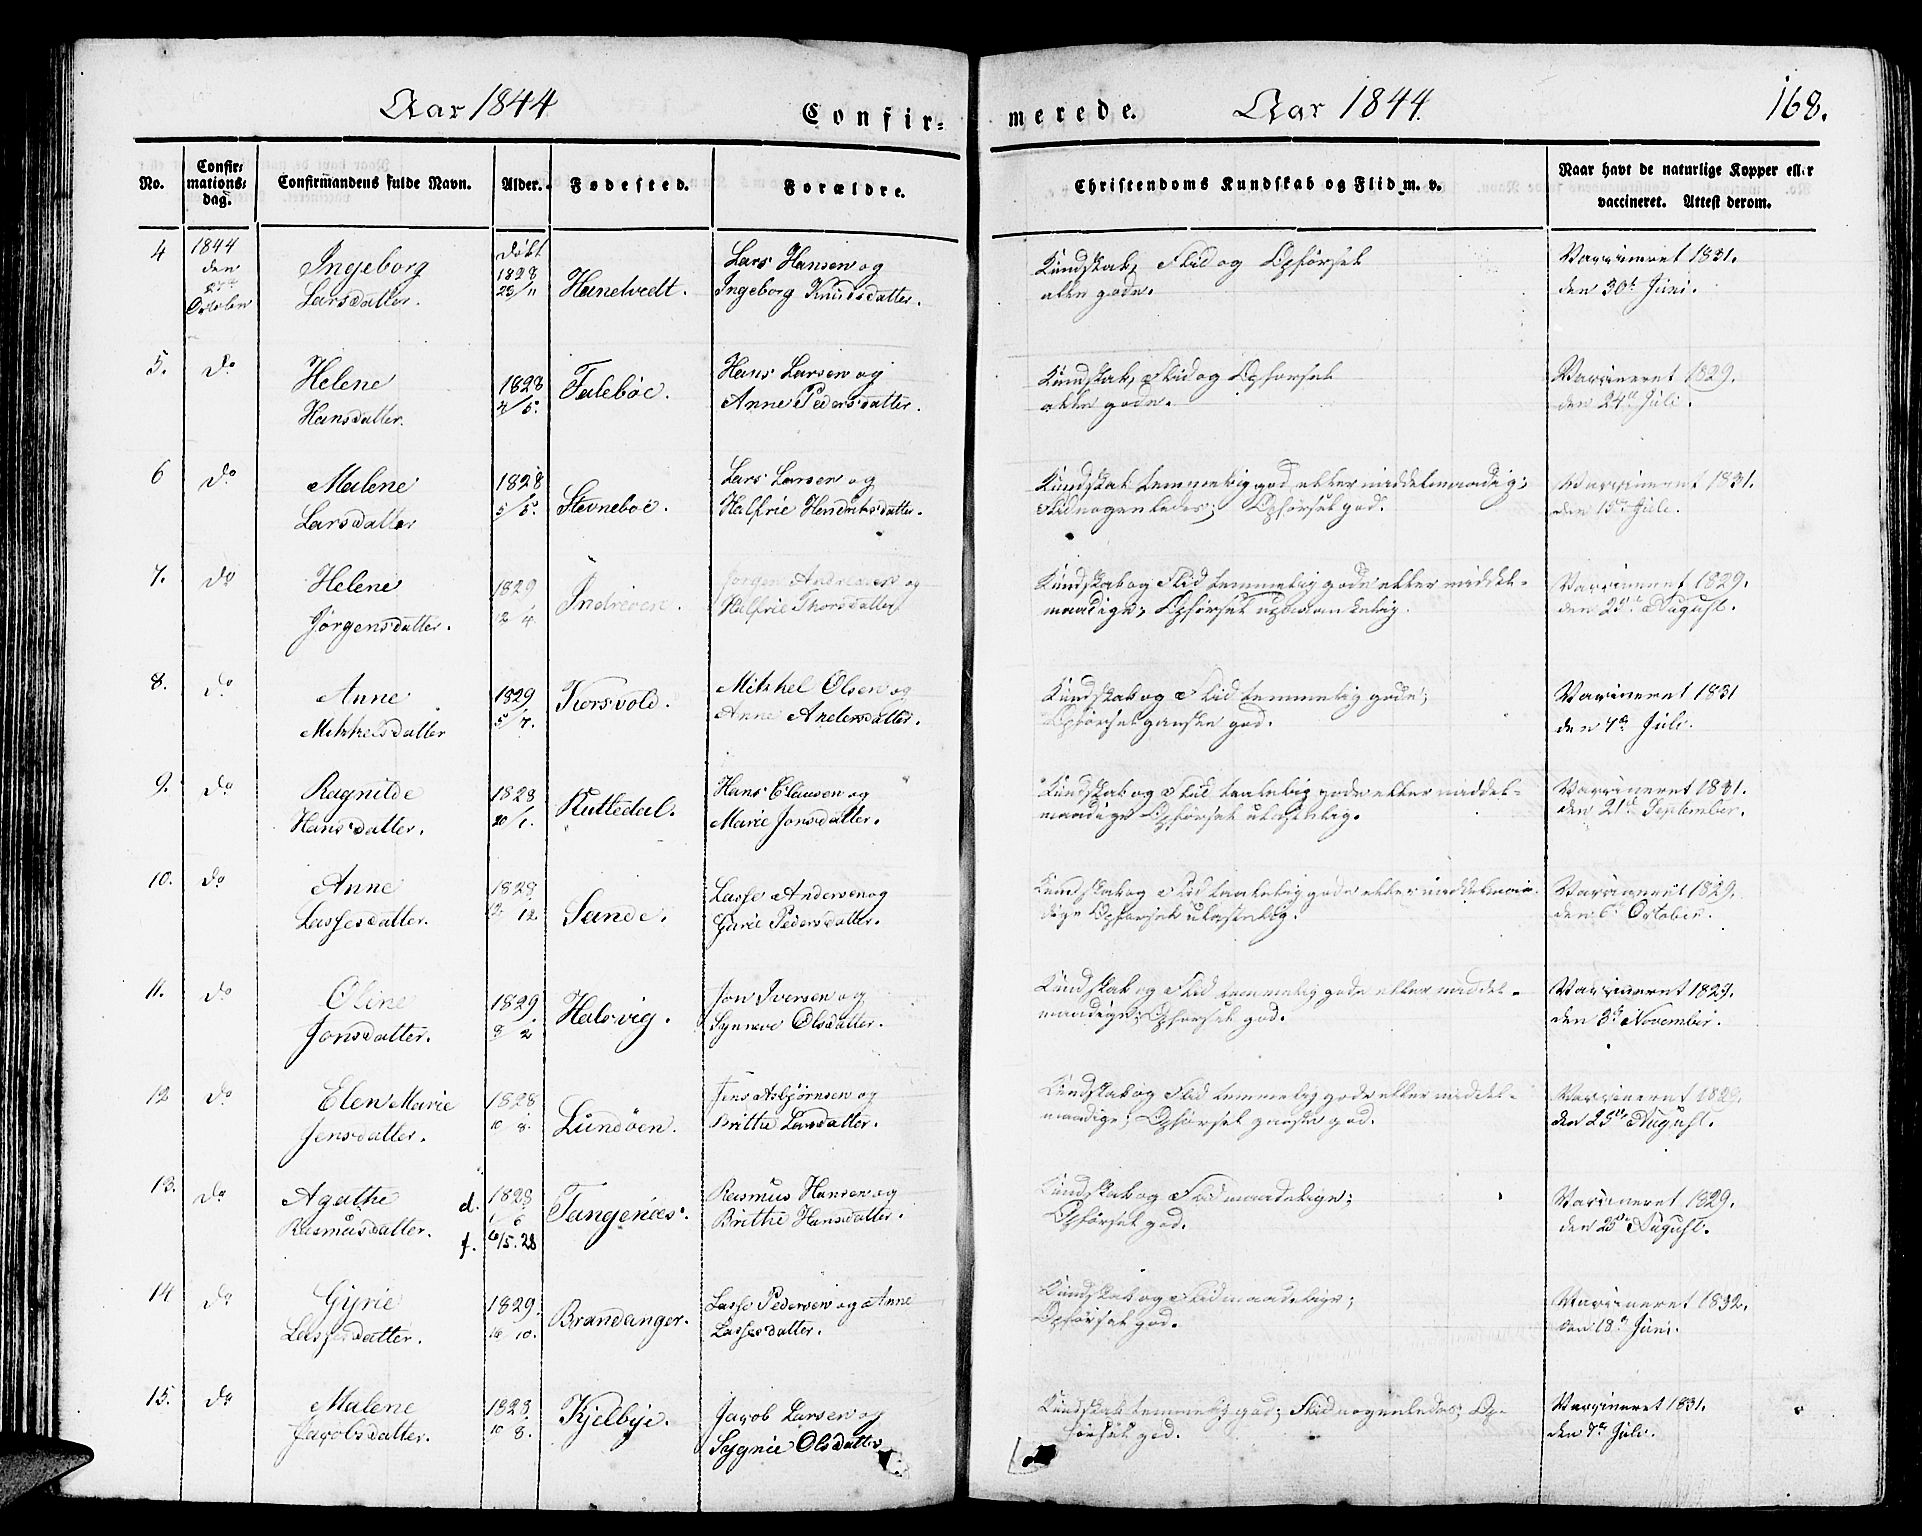 Aar 1844
Confir-
merede.
Aar 1844
168.
No.
Confir-
mations-
dag.
Confirmandens fulde Navn.
Alder.
Fødested.
Forældre.
Christendoms Kundskab og Flid m. v.
Naar havt de naturlige Kopper eller
vaccineret. Attest derom.
4 1844 Ingeborg døbt Lars Hansen og Kundskab, Flid og Opførsel Vaccineret 1831.
den Larsdatter. 1828 23/11 Hanetvedt. Ingeborg Knudsdatter. alle gode. den 30te Juni.
October
5. do Helene 1828 Hans Larsen og Kundskab, Flid og Opførsel Vaccineret 1829.
Hansdatter. 4/5. Falebøe. Anne Pedersdatter. alle gode. den 24de Juli.
6 do Malene 1828 Lars Larsen og Kundskab temmelig god eller middelmaadig; Vaccineret 1831.
Larsdatter 5/5. Stevnebøe. Halfrie Hendriksdatter. Flid nogenledes; Opførsel god. den 15de Juli.
7. do Helene 1829 Jørgen Andersen og Kundskab og Flid temmelig gode eller middel- Vaccineret 1829.
Jørgensdatter. 2 4. Indreøen. Halfrie Thorsdatter maadige; Opførsel upaaankelig. den 25de August.
8. do Anne 1829 Korsvold. Mikkel Olsen og Kundskab og Flid temmelig gode; Vaccineret 1831
Mikkelsdatter 5/7. Anne Andersdatter. Opførsel ganske god. den 7de Juli.
9. do Ragnilde 1828 Hans Clausen og Kundskab og Flid taalelig gode eller middel- Vaccineret 1831.
Hansdatter. 20/1. Rutledal. Marie Jonsdatter. maadige Opførsel ulastelig. den 21de September.
10. do Anne 1828 Lasse Andersen og Kundskab og Flid taalelig gode eller middelmaa- Vaccineret 1829.
Lassesdatter. 12. Sande. Gurie Pedersdatter. dige Opførsel ulastelig. den 6te October.
11. do Oline 1829. Jon Iversen og Kundskab og Flid temmelig gode eller middel- Vaccineret 1829.
Jonsdatter. 8/2 Halsvig. Synneve Olsdatter. maadige; Opførsel god. den 3de November.
12 do Elen Marie 1828 Jens Asbjørnsen og Kundskab og Flid temmelig gode eller middel- Vaccineret 1829.
Jensdatter. 10 8. Lundøen. Brithe Larsdatter. maadige; Opførsel ganske god. den 25de August.
13. do Agathe d. 1828 Rasmus Hansen og Kundskab og Flid maadelige; Vaccineret 1829.
Rasmusdatter. 1/6 Tangenæs. Brithe Hansdatter. Opførsel god. den 25de August.
f. 6/5.28
14 do Gyrie 1829. Lasse Pedersen og Anne Kundskab og Flid maadelige; Vaccineret 1832.
Lassesdatter. 16 10. Brandanger. Lassesdatter. Opførsel god. den 18de Juni.
15. do Malene 1828 Jacob Larsen og Kundskab temmelig god; Flid nogenledes; Op- Vaccineret 1831.
Jacobsdatter. 10 8. Kjelbye. Sygnie Olsdatter førsel god. den 7de Juli.